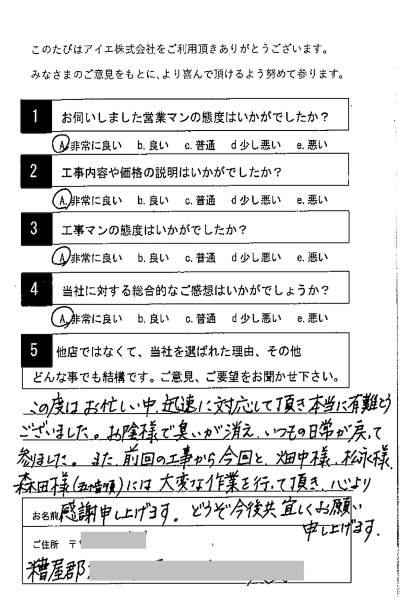 このたびはアイエ株式会社をご利用頂きありがとうございます。
みなさまのご意見をもとに、より喜んで頂けるよう努めて参ります。
1 お伺いしました営業マンの態度はいかがでしたか?
A.非常に良い b.良い c.普通 d少し悪い e.悪い
2 工事内容や価格の説明はいかがでしたか?
A.非常に良い b.良い c.普通 d少し悪い e.悪い
3 工事マンの態度はいかがでしたか?
A.非常に良い b.良い c.普通 d少し悪い e.悪い
4 当社に対する総合的なご感想はいかがでしょうか?
A.非常に良い b.良い c.普通 d少し悪い e.悪い
5 他店ではなくて、当社を選ばれた理由、その他
どんな事でも結構です。ご意見、ご要望をお聞かせ下さい。
この度はお忙しい中、迅速に対応して頂き本当に有難とう
ございました。お陰様で臭いが消え、いつもの日常が戻って
参りました。また、前回の工事から今回と、畑中様、松永様、
森田様には大変な作業を行って頂き、心より
お名前 感謝申し上げます。どうぞ今後共宜しくお願い
申し上げます。
ご住所 〒
糟屋郡